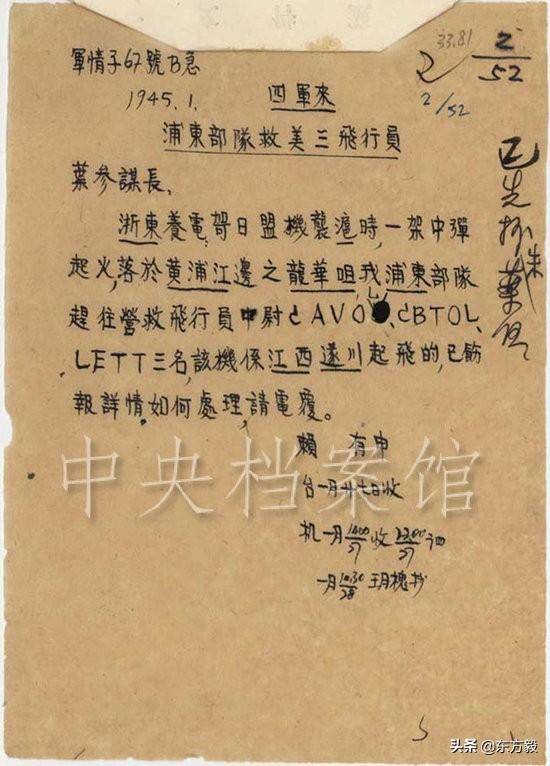 33.81
2
52
2/52
軍情子67號B急
1945.1.
四軍來
浦東部隊救美三飛行員
葉參謀長、
浙東養電哿日盟機襲滬時，一架中彈
起火，落於黄浦江邊之龍華咀，我浦東部隊
趕往營救飛行員中尉
LETT三名，該機係江西遂川起飛的，已飭
報詳情，如何處理，請電覆。
賴 有申
台一月廿七日收
机一月1400/27收2200/27
一月1030/28
已先抄
中央档案馆
头条 @东方毅